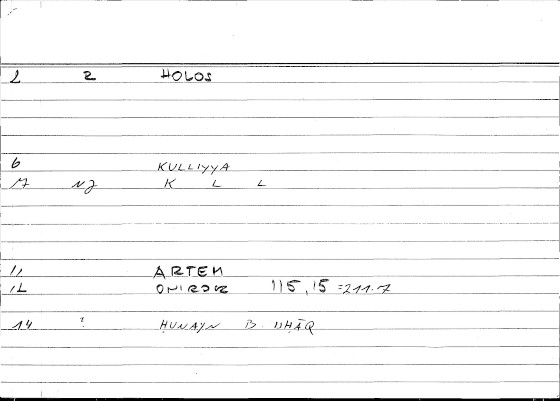 1 2 HOLOS
6 KULLIYYA
17 NJ K L L
11 ARTEM
12 ONIROK 115,15 =211.7
14 : ḤUNAYN B. ISḤĀQ